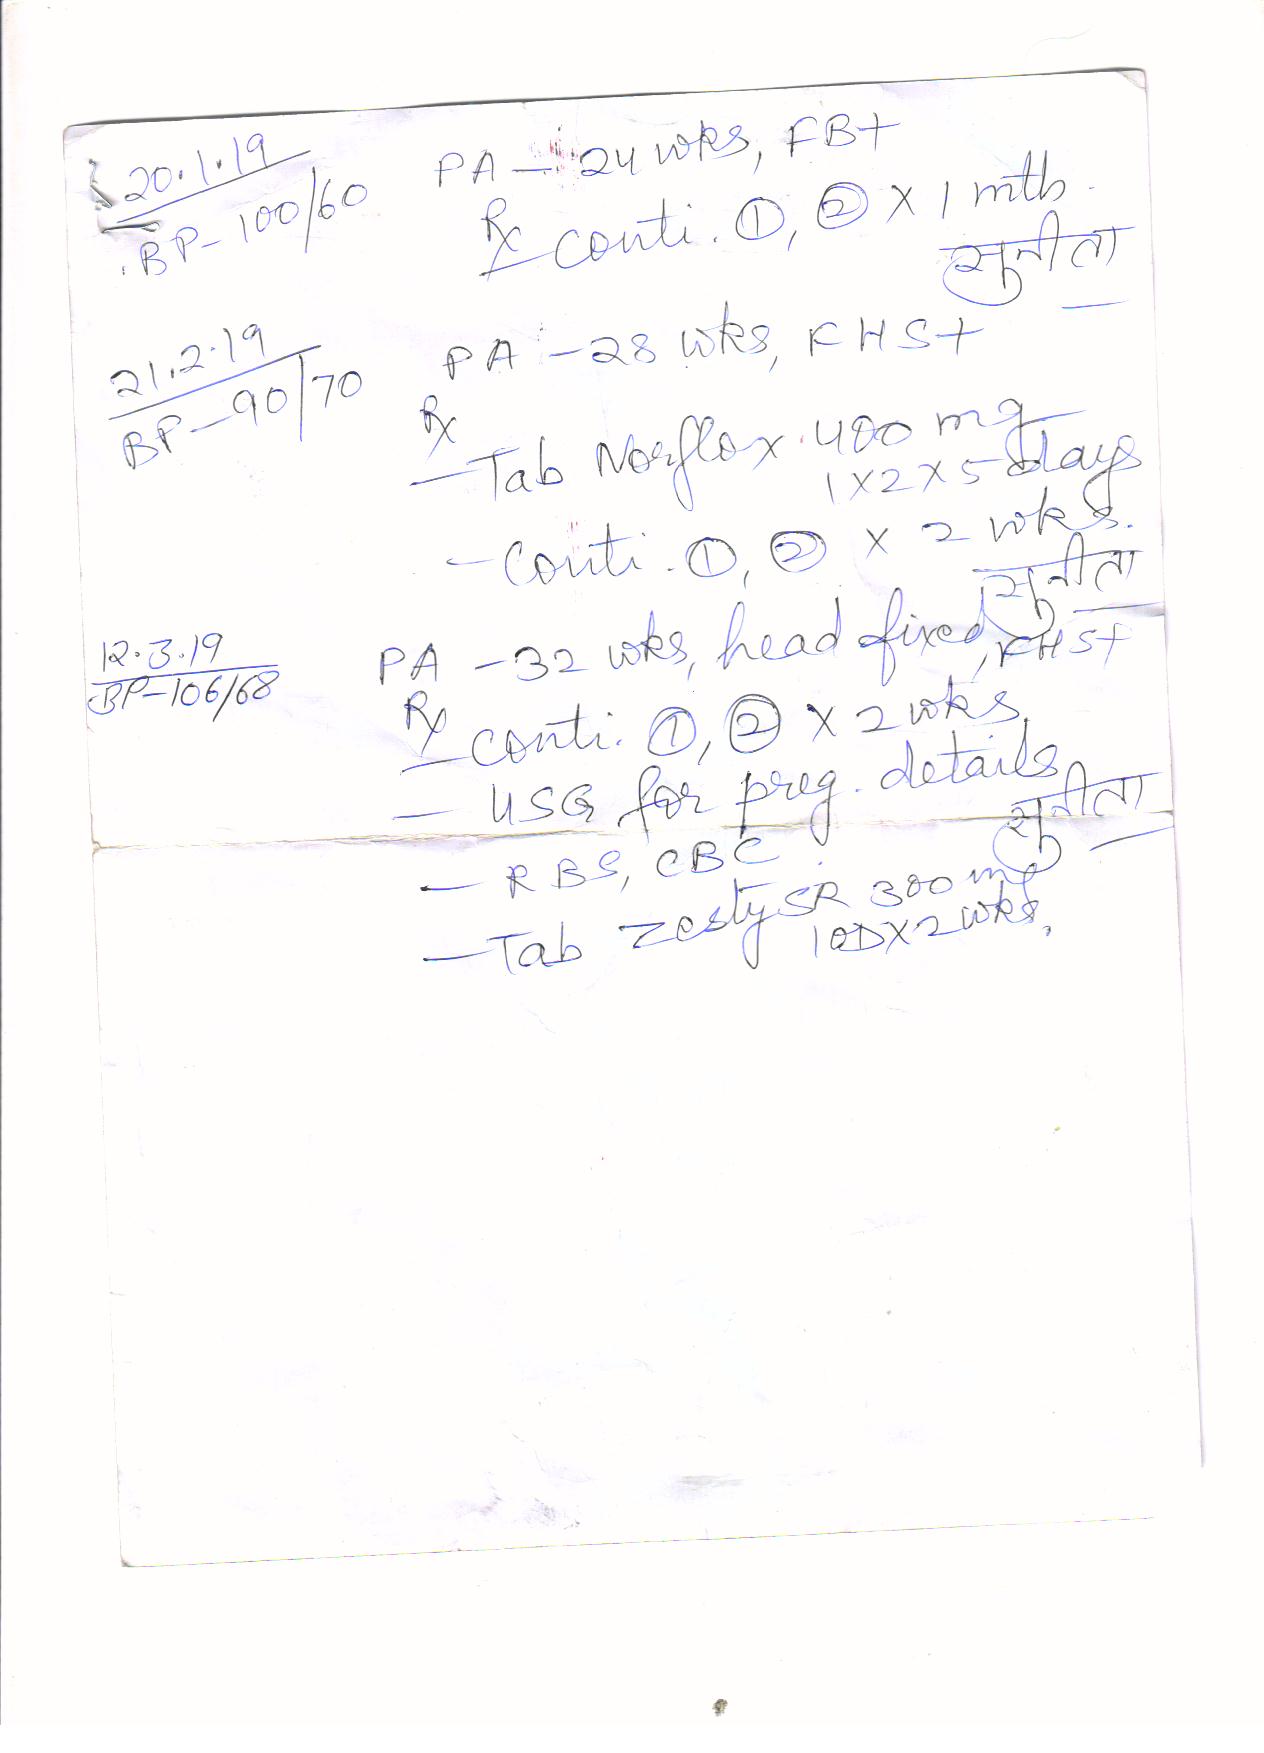 20.1.19
BP-100/60
PA - 24 wks, FB+
Rx
- Conti. ①, ② x 1 mth.
सुनीता
21.2.19
BP-90/70
PA - 28 wks, FHS+
Rx
- Tab Norflox 400 mg
1x2x5 days
- Conti. ①, ② x 2 wks.
सुनीता
12.3.19
BP-106/68
PA - 32 wks, head fixed, FHS+
Rx
- Conti. ①, ② x 2 wks.
- USG for preg. details
सुनीता
- RBS, CBC
- Tab Zesty SR 300 mg
1 OD x 2 wks.